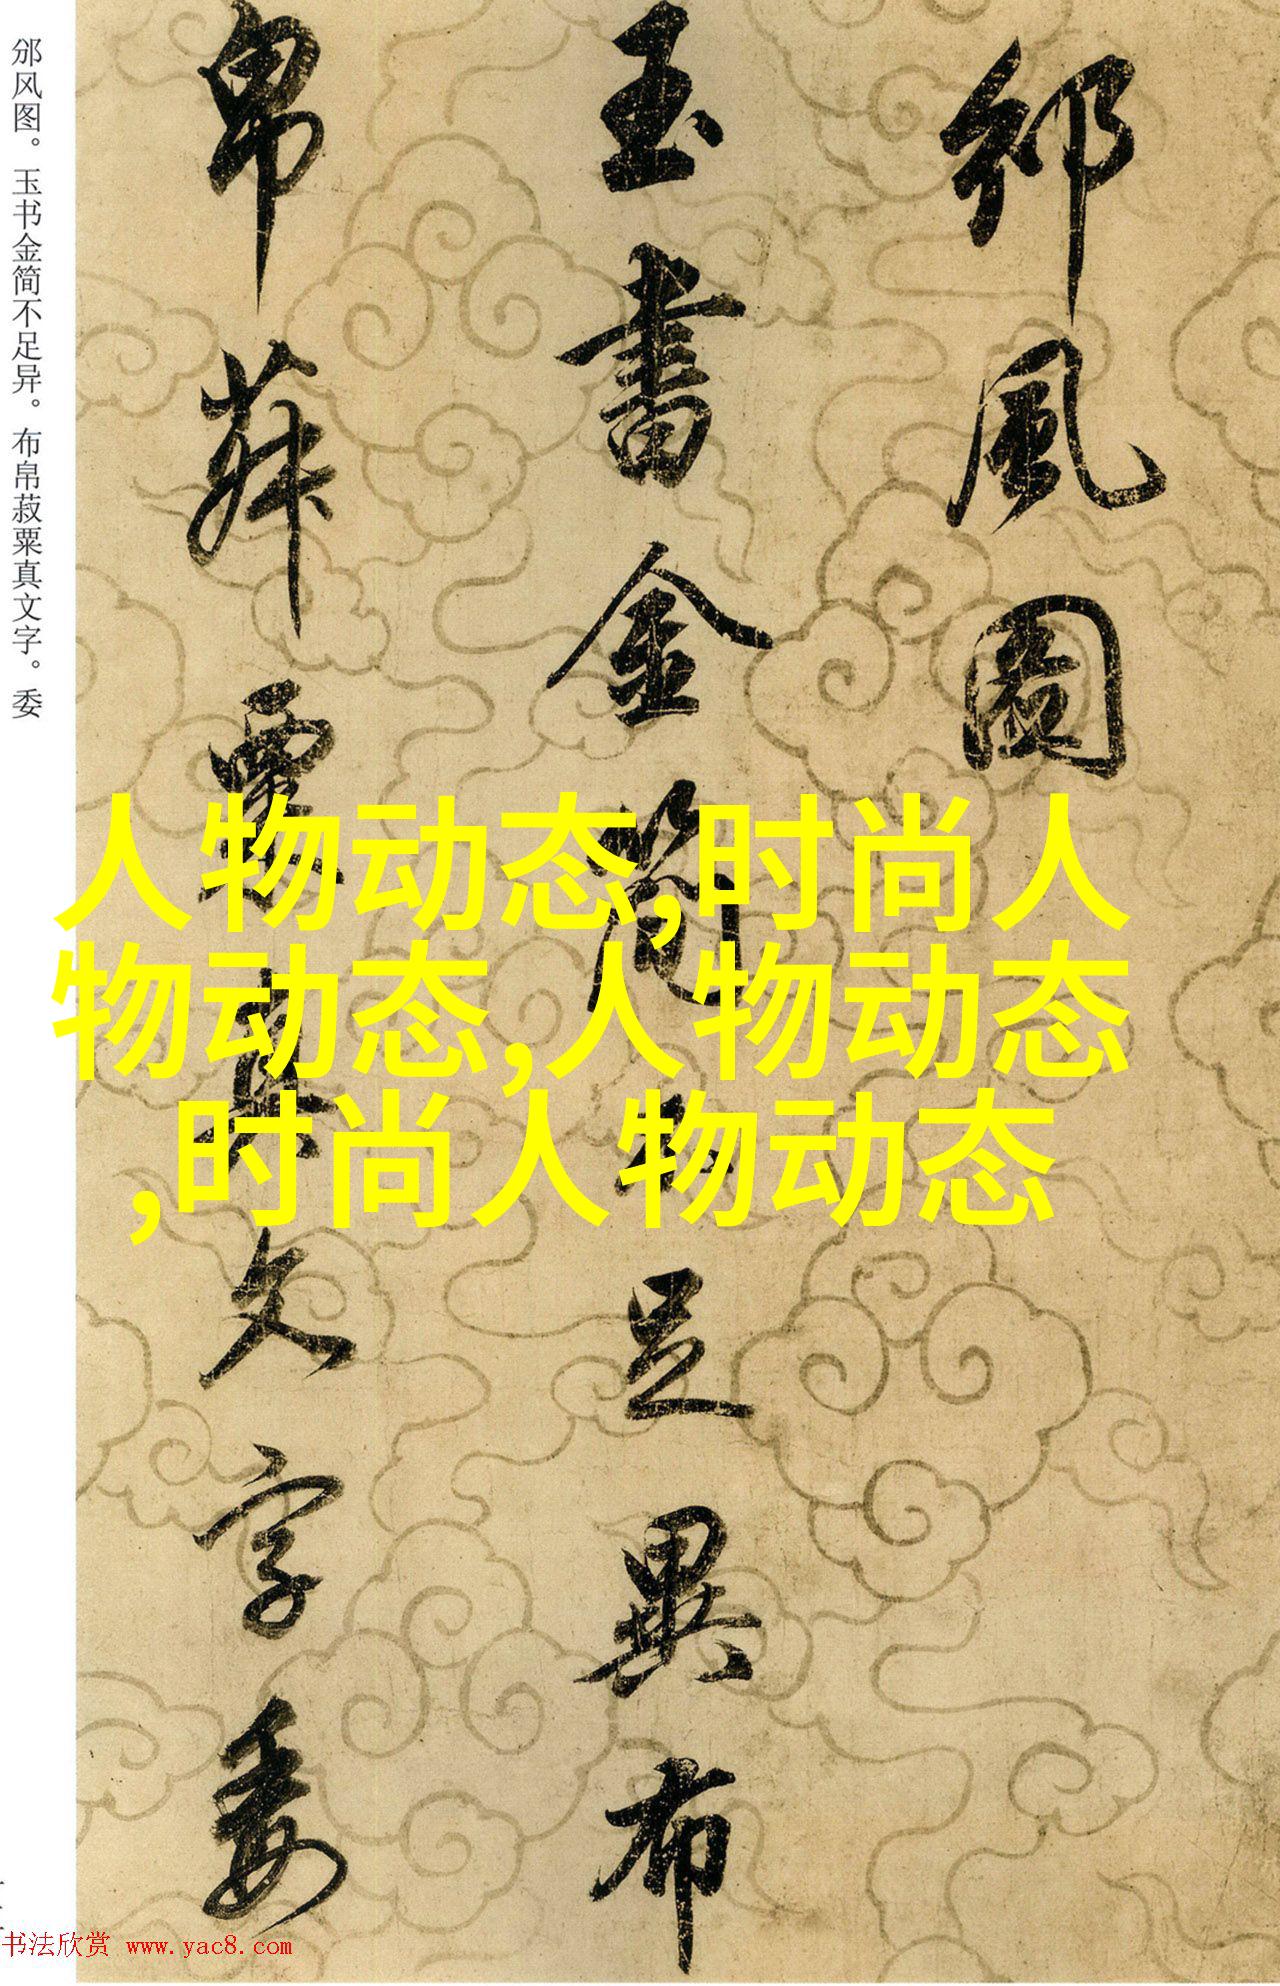 邠风图。玉书金简不足异。布帛菽粟真文字。委
邠風圖
玉書金簡不足異布
帛菽粟真文字委
人物动态,时尚人
物动态,人物动态
,时尚人物动态
书法欣赏 www.yac8.com